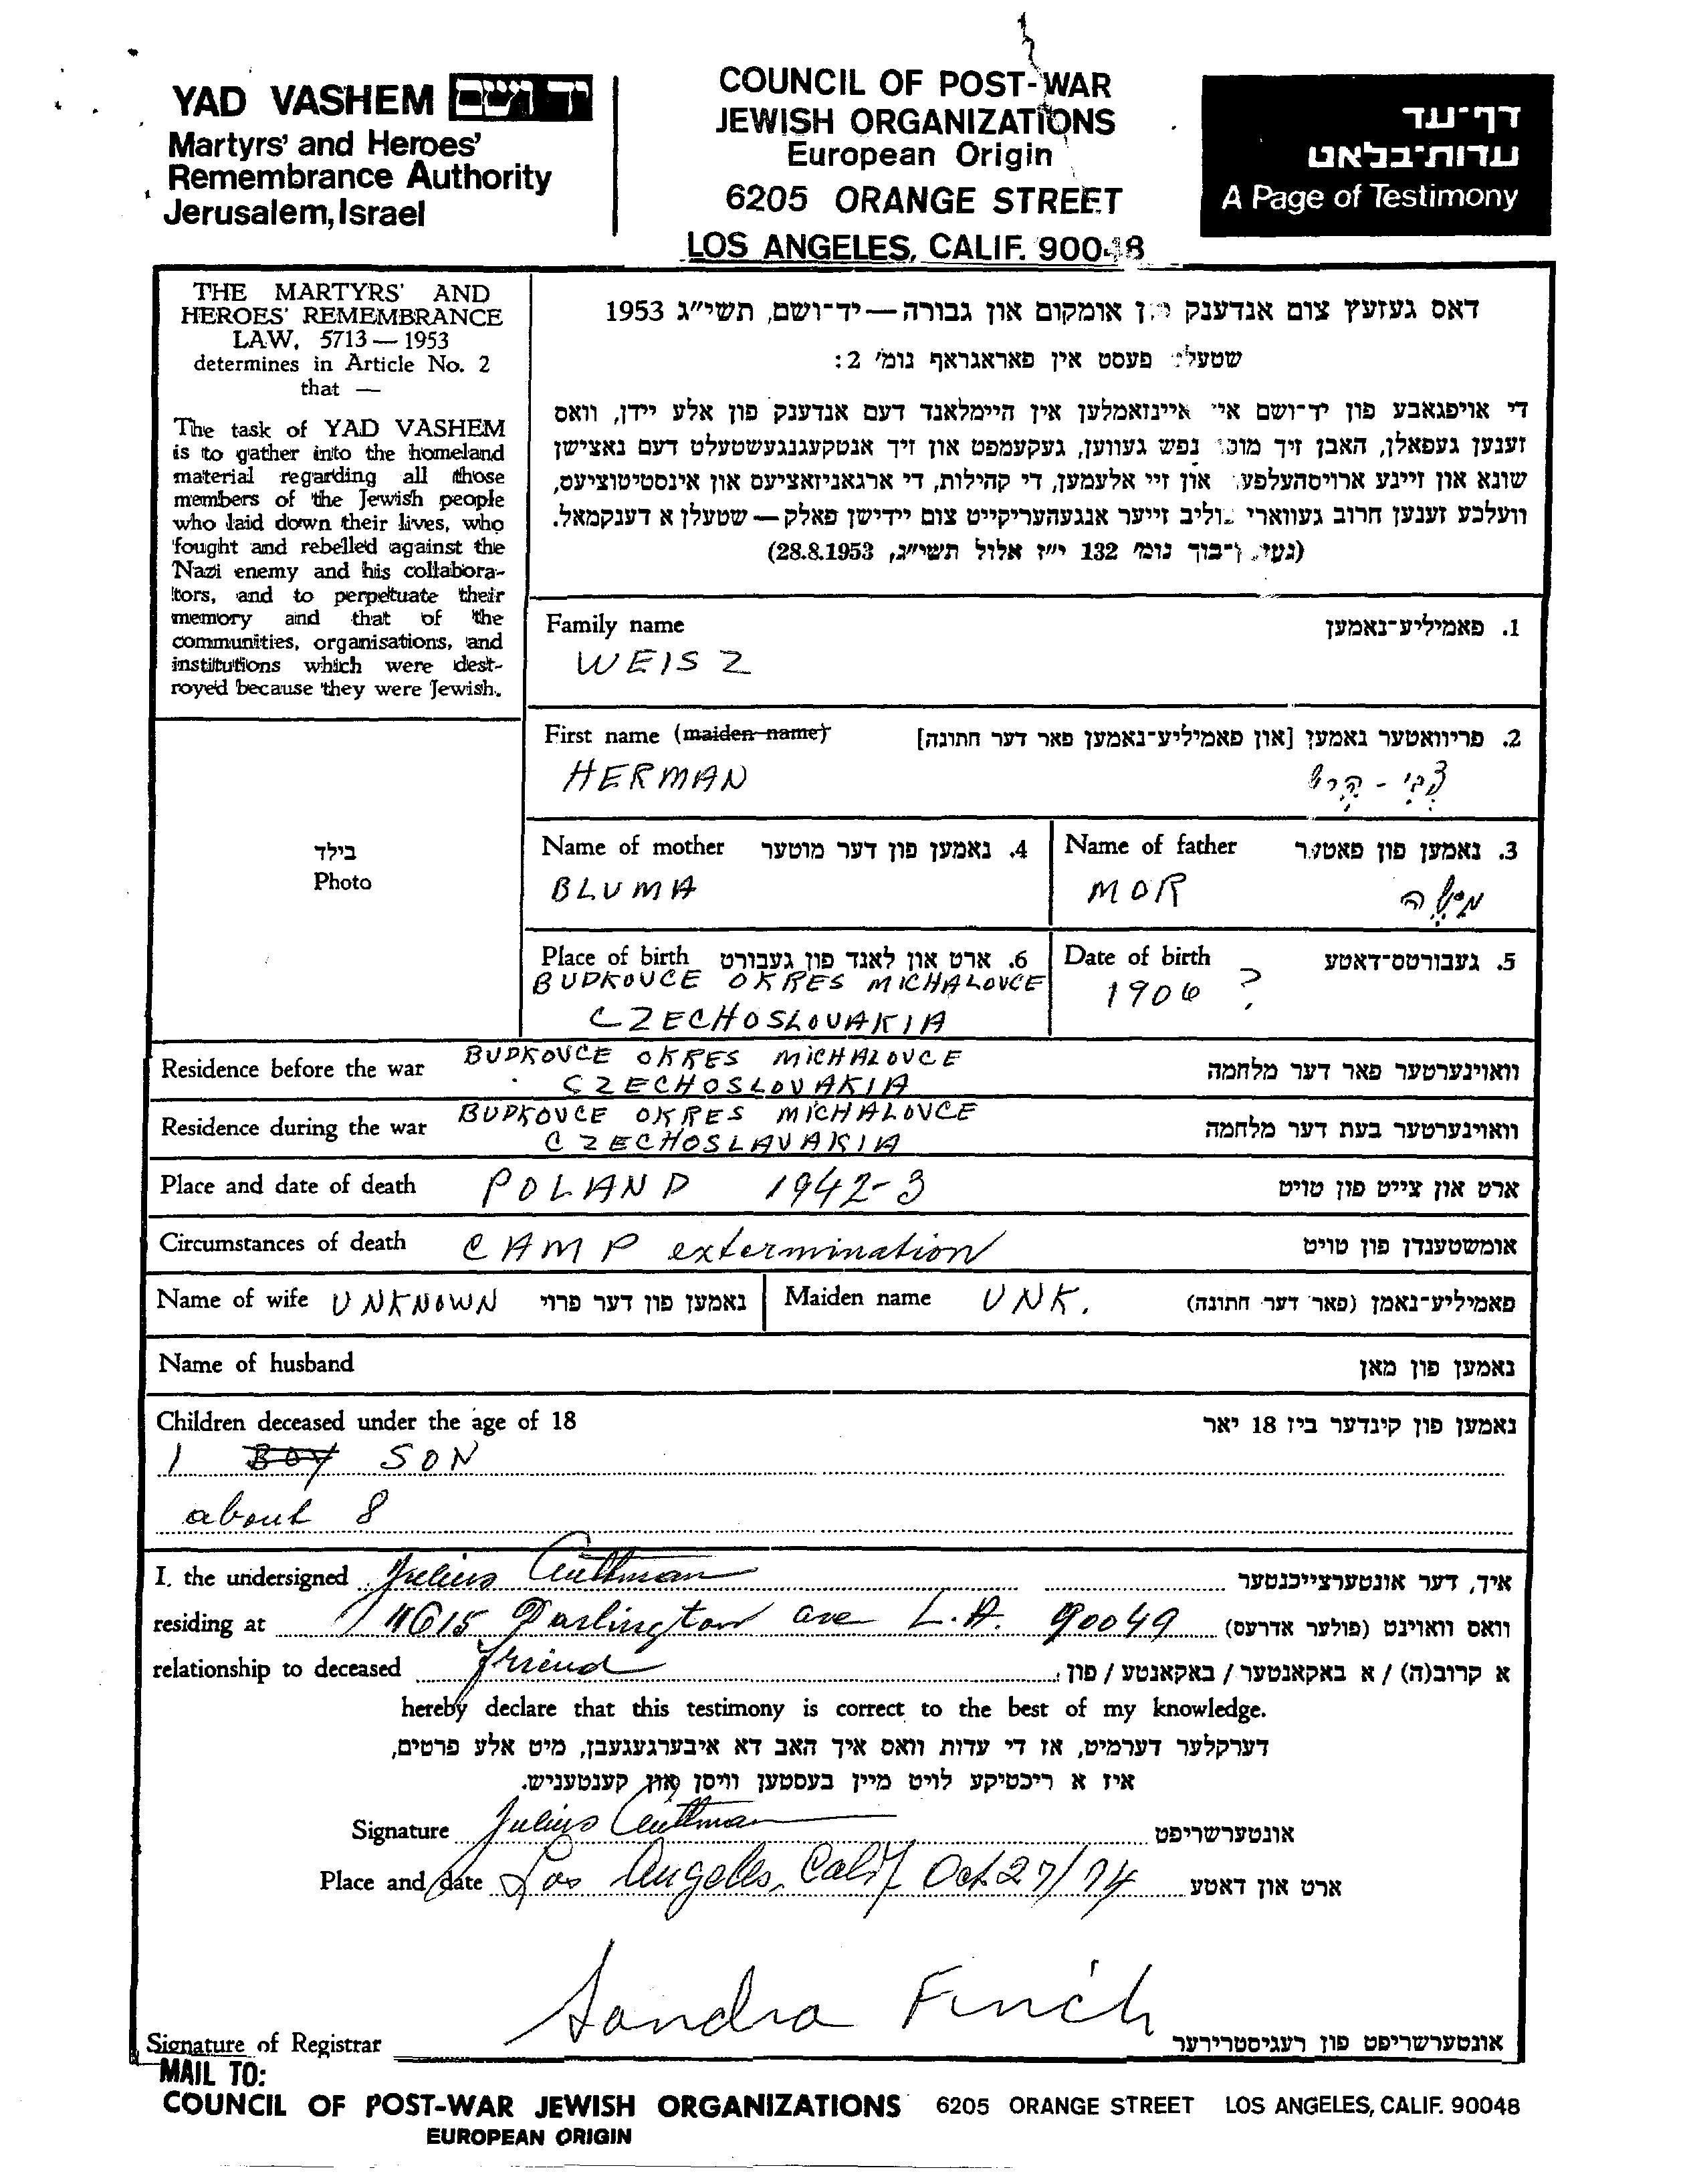 YAD VASHEM יד ושם
Martyrs' and Heroes'
Remembrance Authority
Jerusalem, Israel
COUNCIL OF POST-WAR
JEWISH ORGANIZATIONS
European Origin
6205 ORANGE STREET
LOS ANGELES, CALIF. 90048
דף־עד
עדות־בלאט
A Page of Testimony
THE MARTYRS' AND
HEROES' REMEMBRANCE
LAW, 5713 — 1953
determines in Article No. 2
that —
The task of YAD VASHEM
is to gather into the homeland
material regarding all those
members of the Jewish people
who laid down their lives, who
fought and rebelled against the
Nazi enemy and his collabora-
tors, and to perpetuate their
memory and that of the
communities, organisations, and
institutions which were dest-
royed because they were Jewish.
דאס געזעץ צום אנדענק פון אומקום און גבורה — יד־ושם, תשי"ג 1953
שטעלט פעסט אין פאראגראף נומ' 2:
די אויפגאבע פון יד־ושם איז איינזאמלען אין היימלאנד דעם אנדענק פון אלע יידן, וואס
זענען געפאלן, האבן זיך מוסר נפש געווען, געקעמפט און זיך אנטקעגנגעשטעלט דעם נאצישן
שונא און זיינע ארויסהעלפער און זיי אלעמען, די קהילות, די ארגאניזאציעס און אינסטיטוציעס,
וועלכע זענען חרוב געווארן צוליב זייער אנגעהעריקייט צום יידישן פאלק — שטעלן א דענקמאל.
(געזעץ־בוך נומ' 132 י"ז אלול תשי"ג, 28.8.1953)
Family name 1. פאמיליע־נאמען
WEISZ
First name (maiden name) 2. פריוואטער נאמען [און פאמיליע־נאמען פאר דער חתונה]
HERMAN צבי - הירש
בילד
Photo
Name of mother 4. נאמען פון דער מוטער Name of father 3. נאמען פון פאטער
BLUMA MOR משה
Place of birth 6. ארט און לאנד פון געבורט Date of birth 5. געבורטס־דאטע
BUDKOVCE OKRES MICHALOVCE 1906 ?
CZECHOSLOVAKIA
Residence before the war BUDKOVCE OKRES MICHALOVCE וואוינערטער פאר דער מלחמה
CZECHOSLOVAKIA
Residence during the war BUDKOVCE OKRES MICHALOVCE וואוינערטער בעת דער מלחמה
CZECHOSLAVAKIA
Place and date of death POLAND 1942-3 ארט און צייט פון טויט
Circumstances of death CAMP extermination אומשטענדן פון טויט
Name of wife UNKNOWN נאמען פון דער פרוי Maiden name UNK. פאמיליע־נאמן (פאר דער חתונה)
Name of husband נאמען פון מאן
Children deceased under the age of 18 נאמען פון קינדער ביז 18 יאר
1 BOY SON
about 8
I. the undersigned Julius איך, דער אונטערצייכנטער
residing at 11615 Darlington ave L.A. 90049 וואס וואוינט (פולער אדרעס)
relationship to deceased friend א קרוב(ה) / א באקאנטער / באקאנטע / פון
hereby declare that this testimony is correct to the best of my knowledge.
דערקלער דערמיט, אז די עדות וואס איך האב דא איבערגעגעבן, מיט אלע פרטים,
איז א ריכטיקע לויט מיין בעסטען וויסן און קענטעניש.
Signature Julius אונטערשריפט
Place and date Los Angeles, Calif Oct 27/74 ארט און דאטע
Signature of Registrar Sandra Finch אונטערשריפט פון רעגיסטרירער
MAIL TO:
COUNCIL OF POST-WAR JEWISH ORGANIZATIONS 6205 ORANGE STREET LOS ANGELES, CALIF. 90048
EUROPEAN ORIGIN